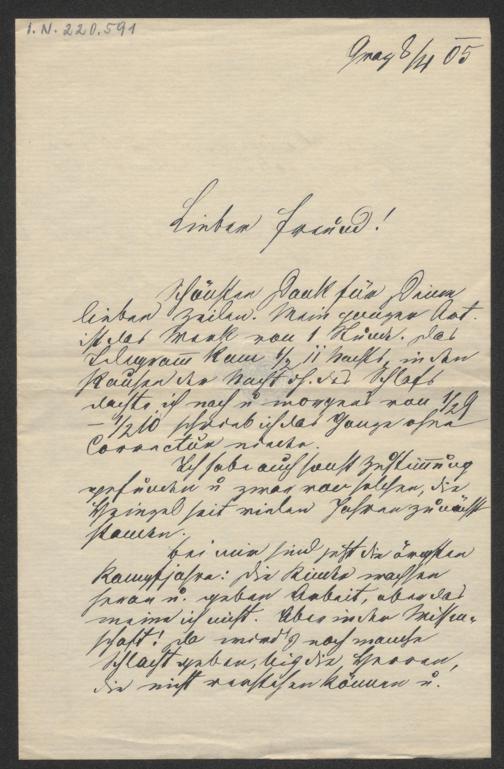 I. N. 220.591
Graz 8/4 05
Lieber Freund!
Schönsten Dank für Deine
lieben Zeilen. Mein ganzer Art.
ist das Werk von 1 Stunde. Das
Telegramm kam 1/2 11 Nachts, in den
Pausen der Nacht d.h. des Schlafs
dachte ich nach u morgens von 1/2 9
– 1/2 10 schrieb ich das Ganze ohne
Correctur nieder.
Ich habe auch sonst Zustimmung
gefunden u zwar von solchen, die
seit vielen Jahren zunächst
standen.
Bei mir sind jetzt die ärgsten
Kampfjahre: die Kinder wachsen
heran u. geben Arbeit, aber das
meine ich nicht. Aber in der Wissen-
schaft! Da wird's noch manche
Schlacht geben, bis die Herren,
die nicht verstehen können u.